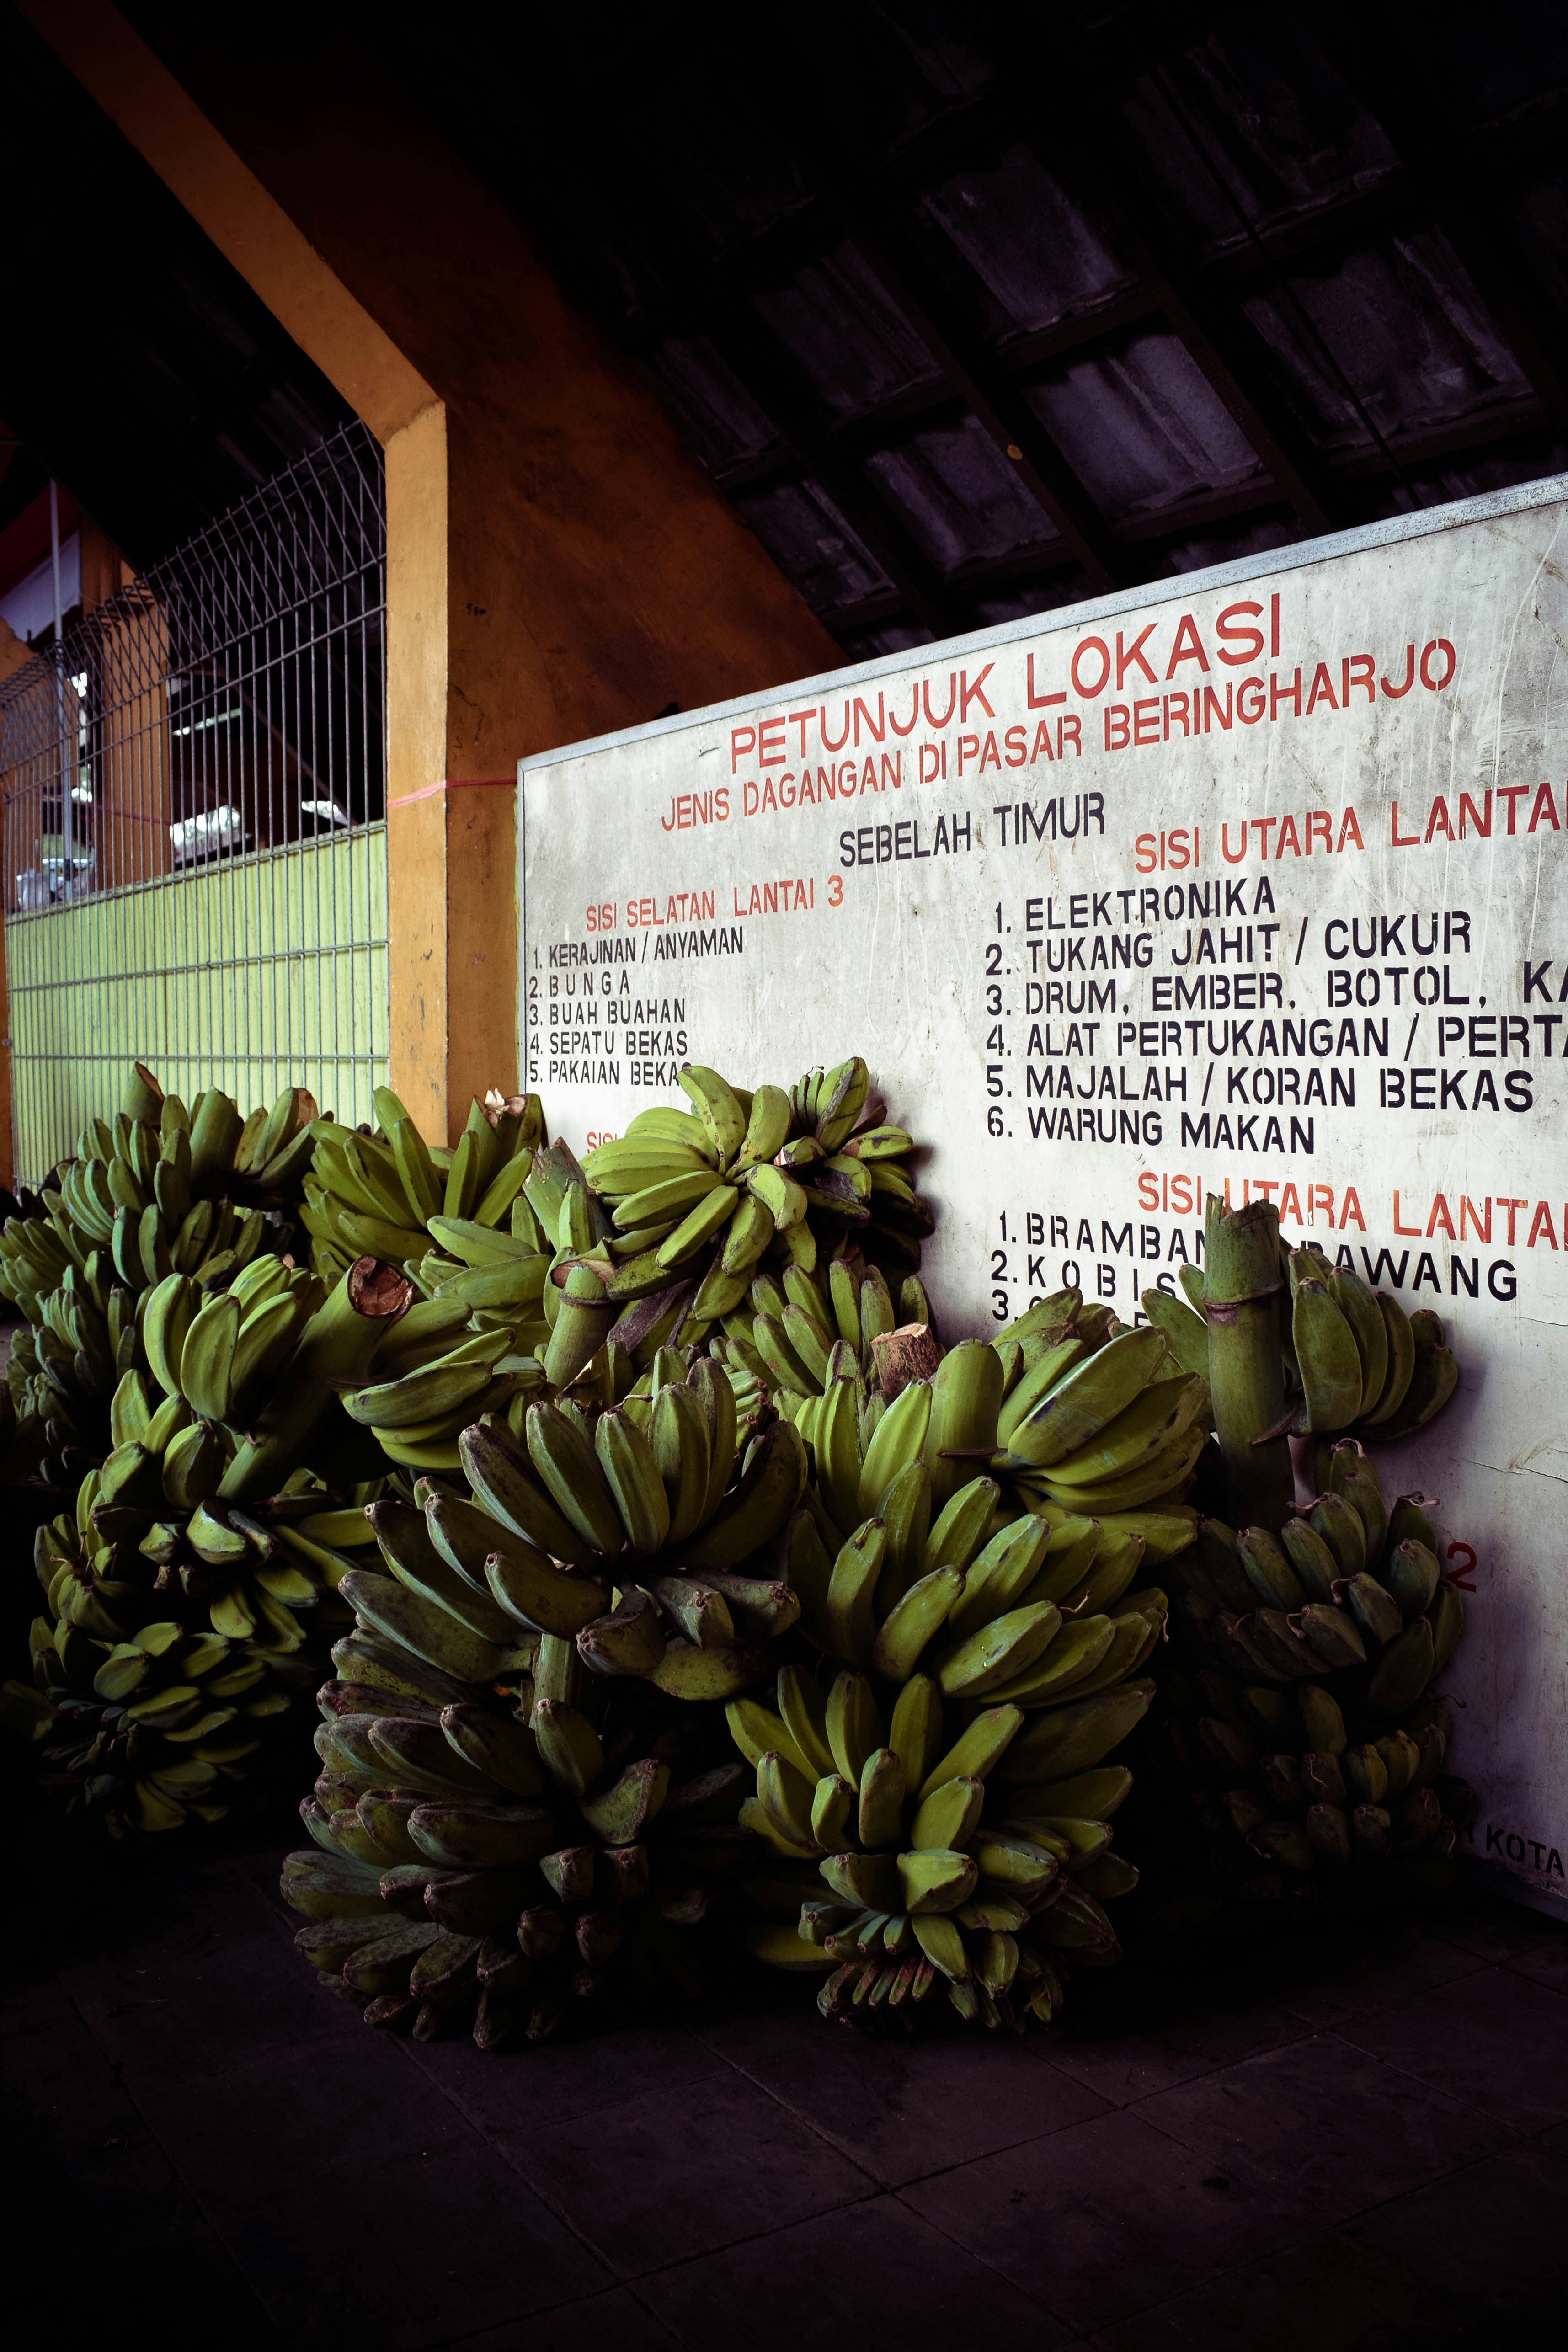 PETUNJUK LOKASI
JENIS DAGANGAN DI PASAR BERINGHARJO
SEBELAH TIMUR
SISI SELATAN LANTAI 3
1. KERAJINAN / ANYAMAN
2. BUNGA
3. BUAH BUAHAN
4. SEPATU BEKAS
5. PAKAIAN BEKAS
SISI UTARA LANTA
1. ELEKTRONIKA
2. TUKANG JAHIT / CUKUR
3. DRUM, EMBER, BOTOL, KA
4. ALAT PERTUKANGAN / PERTA
5. MAJALAH / KORAN BEKAS
6. WARUNG MAKAN
SISI UTARA LANTAI
1. BRAMBAN BAWANG
2. KOBIS
3.
2
KOTA